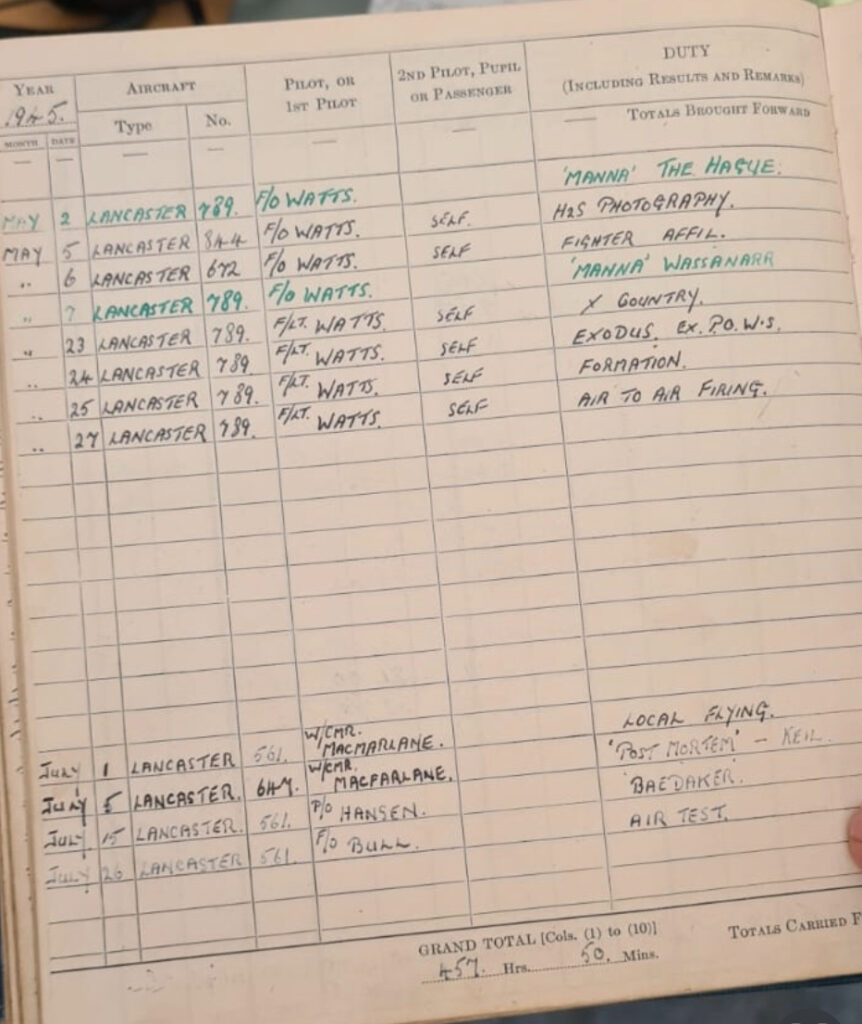 YEAR AIRCRAFT PILOT, OR 1ST PILOT 2ND PILOT, PUPIL OR PASSENGER DUTY (INCLUDING RESULTS AND REMARKS)
1945. Type No.
MONTH DATE — — — — — TOTALS BROUGHT FORWARD
MAY 2 LANCASTER 789. F/O WATTS. 'MANNA' THE HAGUE.
MAY 5 LANCASTER 844 F/O WATTS. SELF. H2S PHOTOGRAPHY.
" 6 LANCASTER 672 F/O WATTS. SELF FIGHTER AFFIL.
" 7 LANCASTER 789. F/O WATTS. 'MANNA' WASSANARR
" 23 LANCASTER 789. F/LT. WATTS. SELF X COUNTRY.
" 24 LANCASTER 789 F/LT. WATTS. SELF EXODUS. EX. P.O.W.S.
" 25 LANCASTER 789. F/LT. WATTS. SELF FORMATION.
" 27 LANCASTER 789. F/LT. WATTS. SELF AIR TO AIR FIRING.
July 1 LANCASTER 561. W/CMR. MACMARLANE. LOCAL FLYING.
July 5 LANCASTER. 647. W/CMR. MACFARLANE. 'POST MORTEM' - KEIL.
July 15 LANCASTER. 561. HANSEN. BAEDAKER.
July 26 LANCASTER 561. F/O BULL. AIR TEST.
GRAND TOTAL [Cols. (1) to (10)] TOTALS CARRIED F
457. Hrs. 50. Mins.